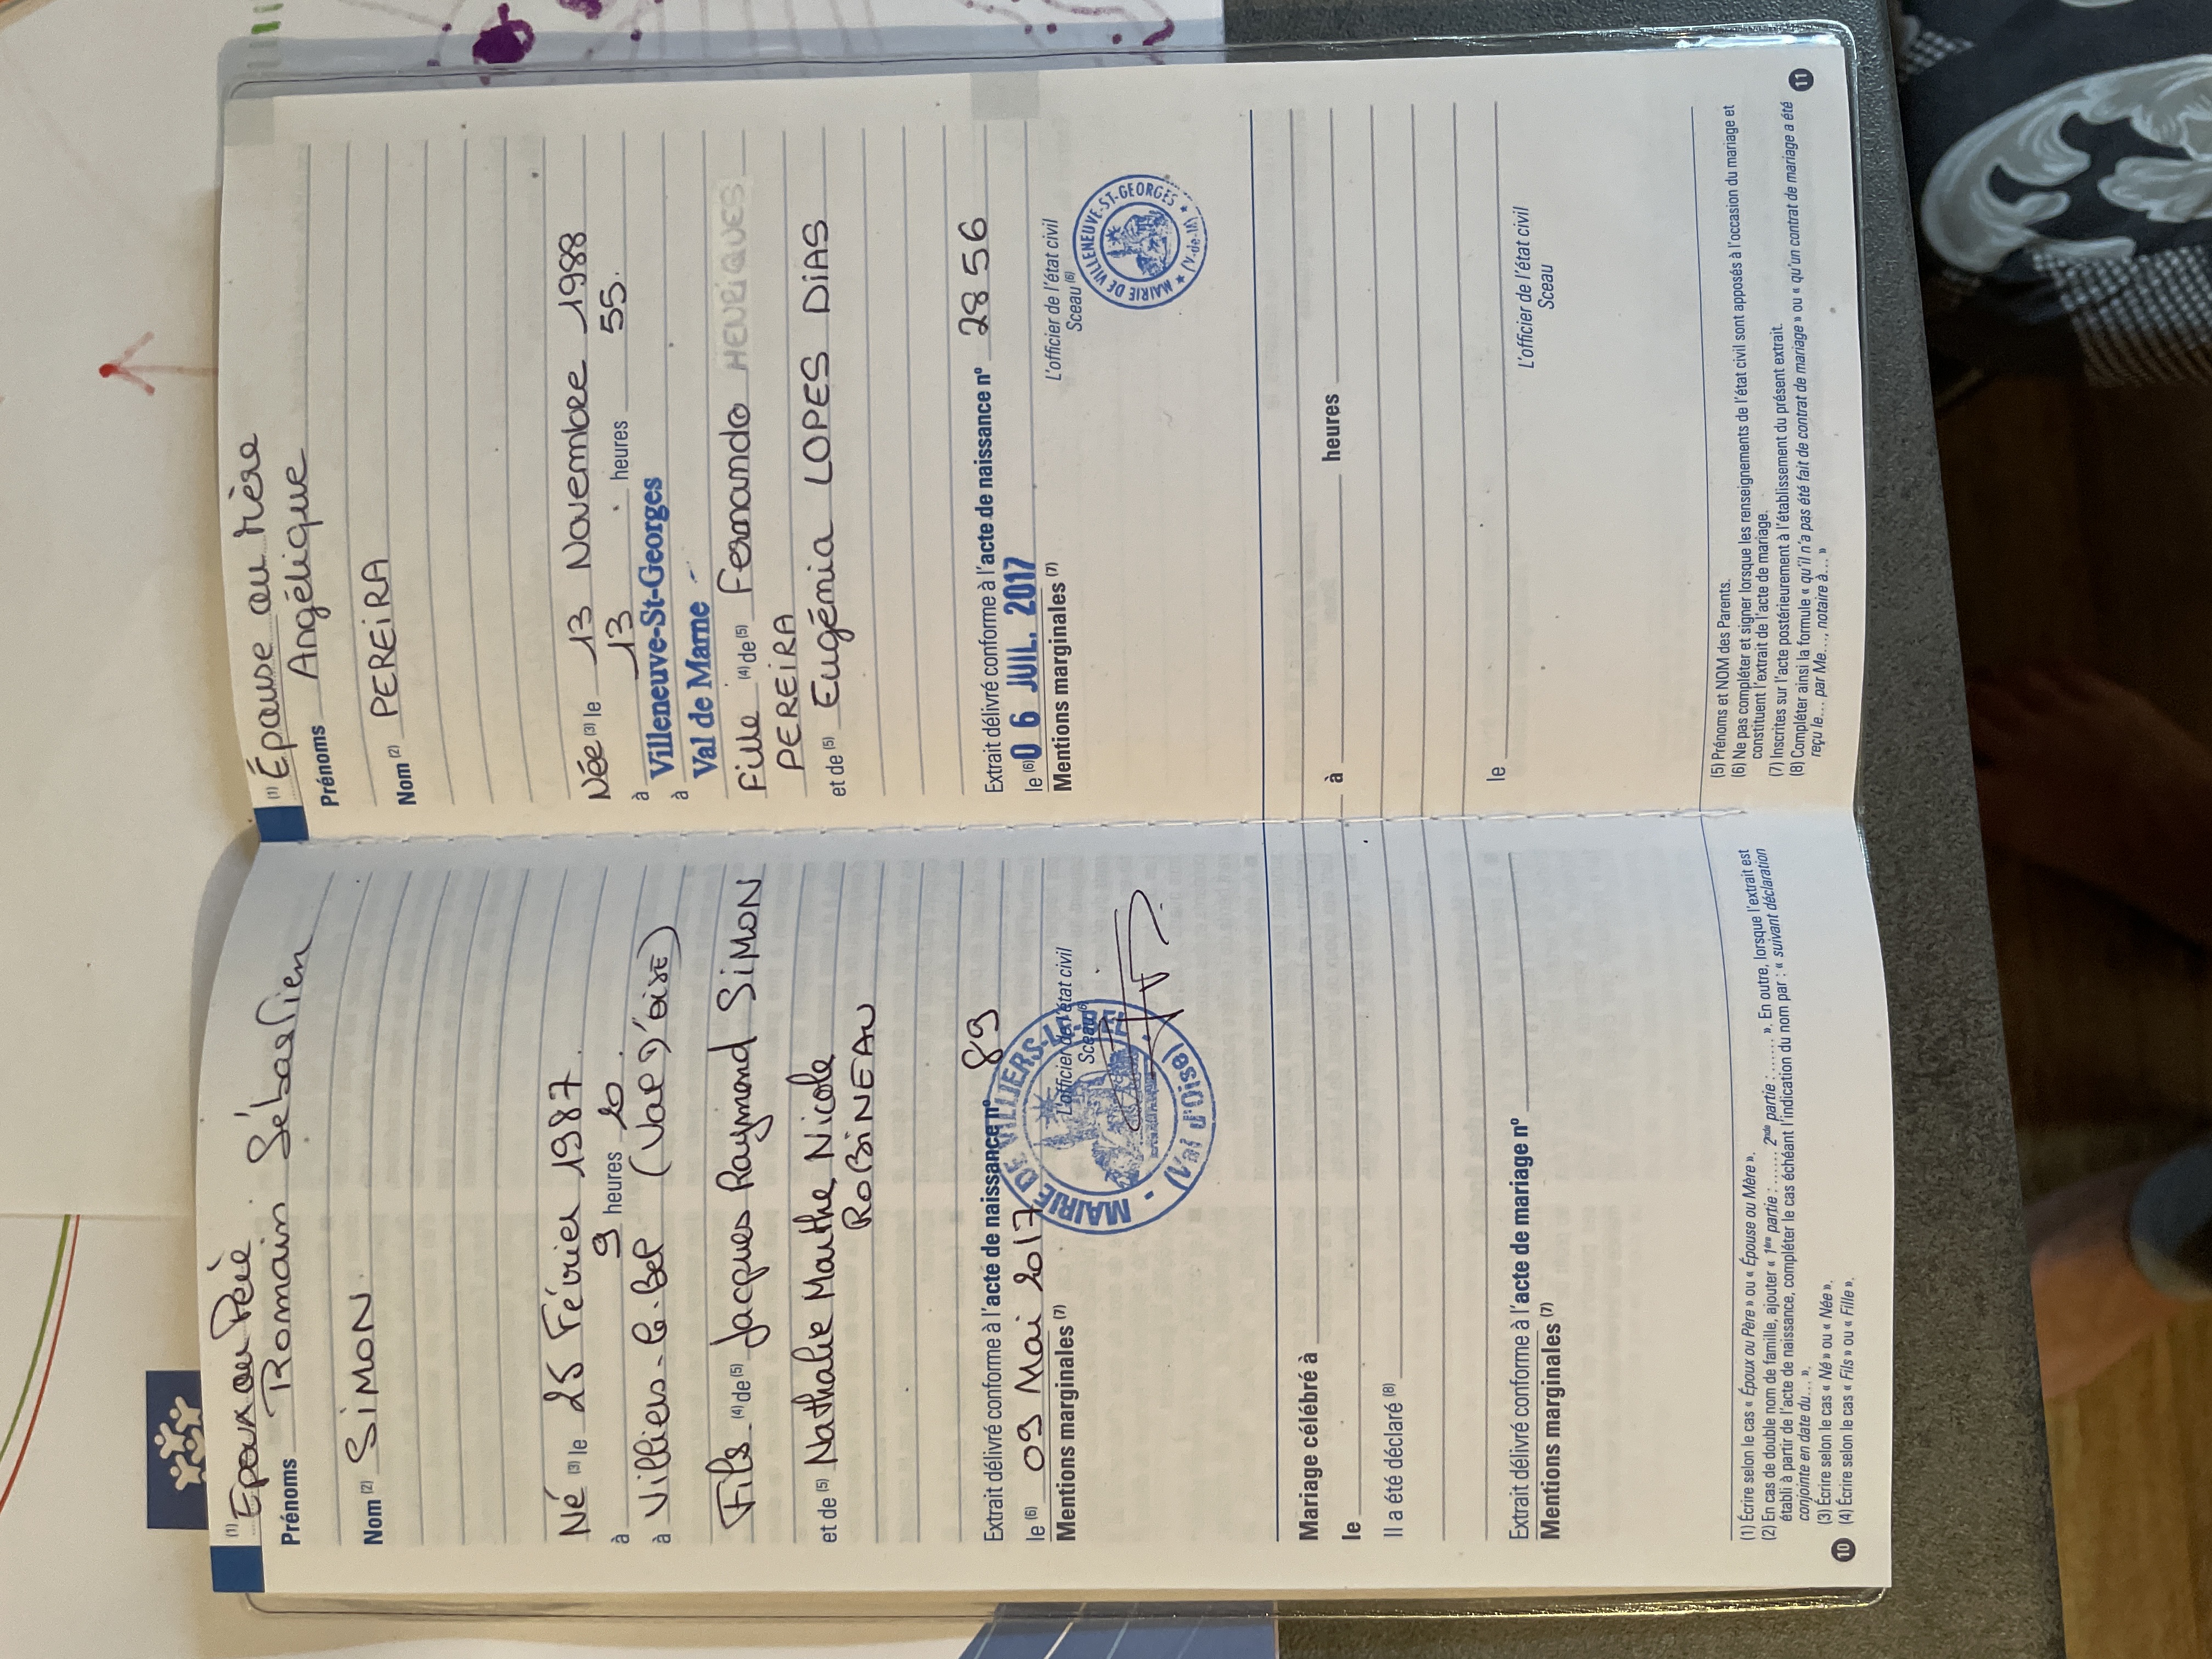 (1) Epoux ou Père
Prénoms Romain Sébastien
Nom (2) SiMON.
Né (3) le 25 Février 1987.
à 9 heures 20.
à Villiers-le-Bel (Val d'Oise)
Fils (4) de (5) Jacques Raymond SiMON
et de (5) Nathalie Marthe, Nicole
ROBiNEAU
Extrait délivré conforme à l'acte de naissance n° 89
le (6) 09 Mai 2017
L'officier de l'état civil
Sceau (6)
Mentions marginales (7)
MAIRIE DE VILLIERS-LE-BEL (Val d'Oise)
Mariage célébré à
le
Il a été déclaré (8)
Extrait délivré conforme à l'acte de mariage n°
Mentions marginales (7)
(1) Écrire selon le cas « Époux ou Père » ou « Épouse ou Mère ».
(2) En cas de double nom de famille, ajouter « 1ère partie : ....... 2nde partie : ....... ». En outre, lorsque l'extrait est
établi à partir de l'acte de naissance, compléter le cas échéant l'indication du nom par : « suivant déclaration
conjointe en date du... ».
(3) Écrire selon le cas « Né » ou « Née ».
(4) Écrire selon le cas « Fils » ou « Fille ».
10
(1) Épouse ou Mère
Prénoms Angélique
Nom (2) PEREiRA
Née (3) le 13 Novembre 1988
13 heures 55.
à Villeneuve-St-Georges
à Val de Marne -
Fille (4) de (5) Fernando HENRiQUES
PEREiRA
et de (5) Eugémia LOPES DiAS
Extrait délivré conforme à l'acte de naissance n° 2856
le (6) 0 6 JUIL. 2017
Mentions marginales (7)
L'officier de l'état civil
Sceau (6)
MAIRIE DE VILLENEUVE-ST-GEORGES (V-de-M)
à heures
le
L'officier de l'état civil
Sceau
(5) Prénoms et NOM des Parents.
(6) Ne pas compléter et signer lorsque les renseignements de l'état civil sont apposés à l'occasion du mariage et
constituent l'extrait de l'acte de mariage.
(7) Inscrites sur l'acte postérieurement à l'établissement du présent extrait.
(8) Compléter ainsi la formule « qu'il n'a pas été fait de contrat de mariage » ou « qu'un contrat de mariage a été
reçu le... par Me..., notaire à... »
11